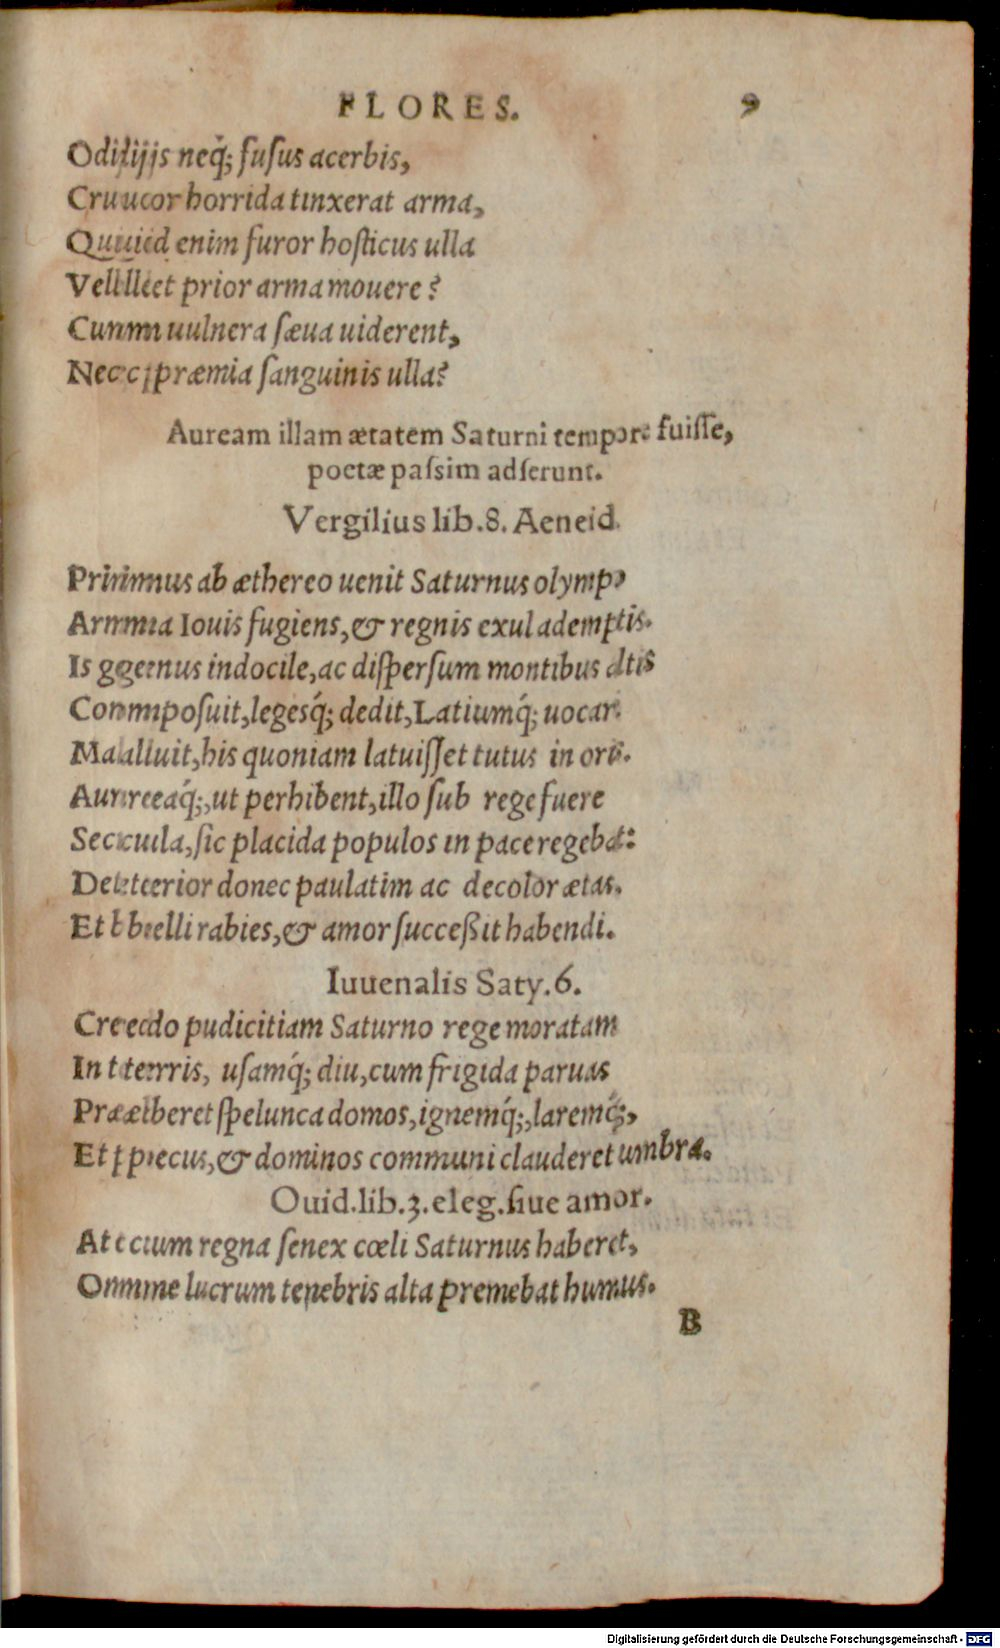 FLORES. 9
Odijs neq́; fusus acerbis,
Cruor horrida tinxerat arma,
Quid enim furor hosticus ulla
Vellet prior arma mouere?
Cum uulnera sæua uiderent,
Nec præmia sanguinis ulla?
Auream illam ætatem Saturni tempore fuisse,
poetæ passim adserunt.
Vergilius lib.8. Aeneid.
Primus ab æthereo uenit Saturnus olympo
Arma Iouis fugiens, & regnis exul ademptis.
Is genus indocile, ac dispersum montibus altis
Composuit, legesq́; dedit, Latiumq́; uocari
Maluit, his quoniam latuisset tutus in oris.
Aureaq́;, ut perhibent, illo sub rege fuere
Secula, sic placida populos in pace regebat:
Deterior donec paulatim ac decolor ætas.
Et belli rabies, & amor successit habendi.
Iuuenalis Saty.6.
Credo pudicitiam Saturno rege moratam
In terris, usamq́; diu, cum frigida paruas
Præberet spelunca domos, ignemq́;, laremq́;,
Et pecus, & dominos communi clauderet umbra.
Ouid.lib.3.eleg.siue amor.
At cum regna senex cœli Saturnus haberet,
Omne lucrum tenebris alta premebat humus.
B
Digitalisierung gefördert durch die Deutsche Forschungsgemeinschaft - DFG